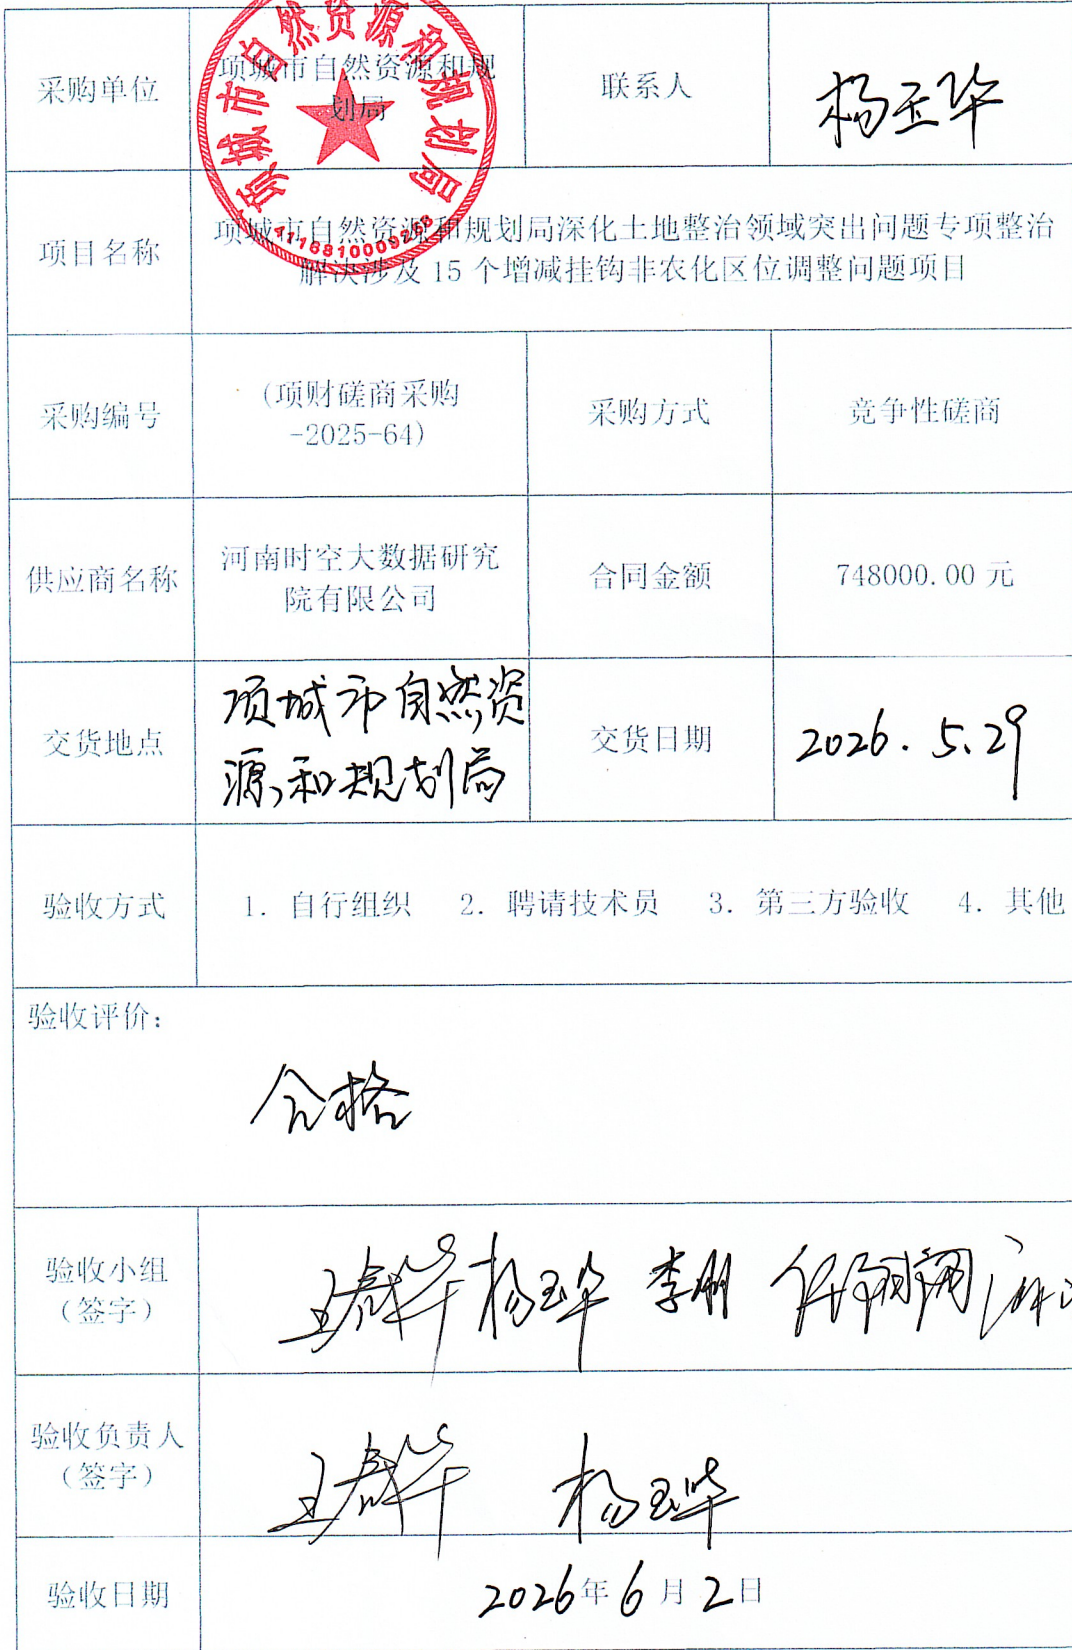 项城市自然资源和规划局
4116810009268
采购单位
项城市自然资源和规
划局
联系人
杨玉华
项目名称
项城市自然资源和规划局深化土地整治领域突出问题专项整治
解决涉及 15 个增减挂钩非农化区位调整问题项目
采购编号
(项财磋商采购
-2025-64)
采购方式
竞争性磋商
供应商名称
河南时空大数据研究
院有限公司
合同金额
748000.00 元
交货地点
项城市自然资
源和规划局
交货日期
2026.5.29
验收方式
1. 自行组织 2. 聘请技术员 3. 第三方验收 4. 其他
验收评价:
合格
验收小组
(签字)
杨玉华 李刚
验收负责人
(签字)
杨玉华
验收日期
2026年6月2日